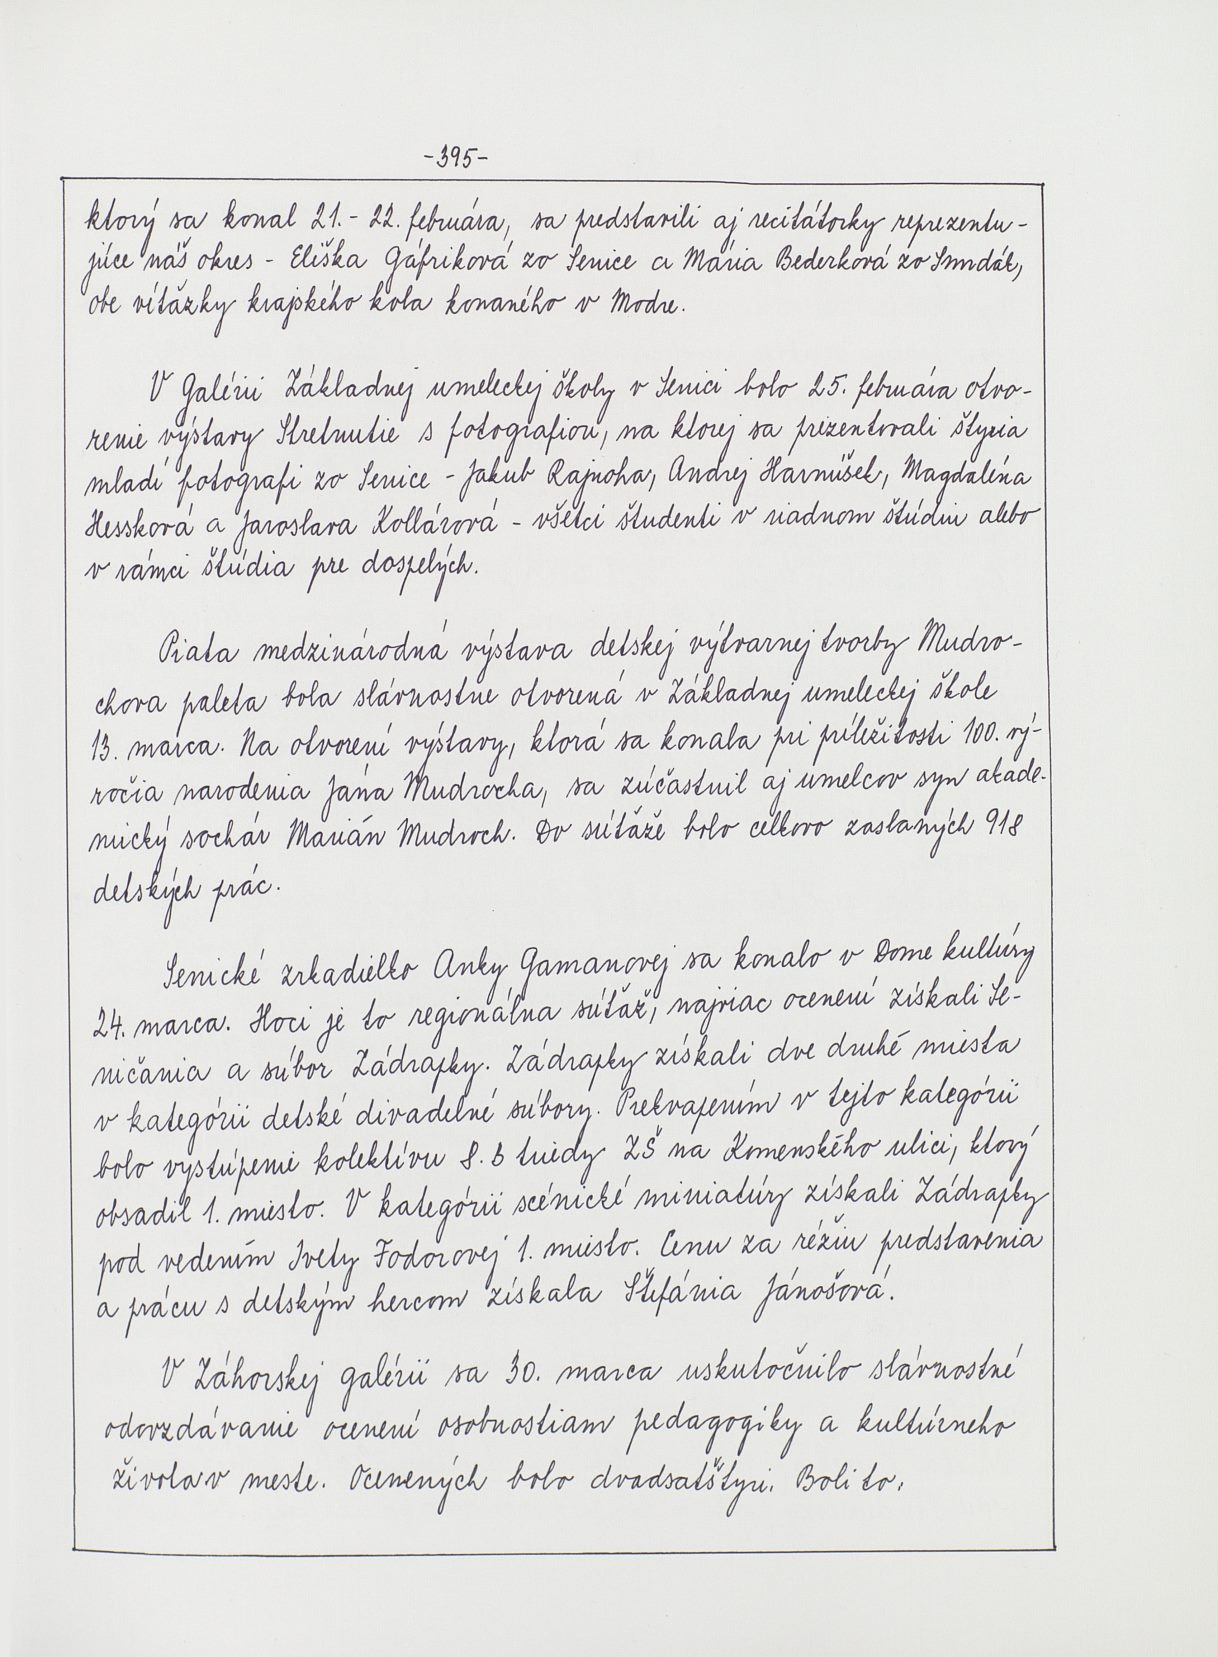 -395-
ktorý sa konal 21. - 22. februára, sa predstavili aj recitátorky reprezentu-
júce náš okres - Eliška Gáfriková zo Senice a Mária Bederková zo Smrdák,
obe víťazky krajského kola konaného v Modre.
V Galérii Základnej umeleckej školy v Senici bolo 25. februára otvo-
renie výstavy Stretnutie s fotografiou, na ktorej sa prezentovali štyria
mladí fotografi zo Senice - Jakub Rajnoha, Andrej Harnúšek, Magdaléna
Hessková a Jaroslava Kollárová - všetci študenti v riadnom štúdiu alebo
v rámci štúdia pre dospelých.
Piata medzinárodná výstava detskej výtvarnej tvorby Mudro-
chova paleta bola slávnostne otvorená v Základnej umeleckej škole
13. marca. Na otvorení výstavy, ktorá sa konala pri príležitosti 100. vý-
ročia narodenia Jána Mudrocha, sa zúčastnil aj umelcov syn akade-
mický sochár Marián Mudroch. Do súťaže bolo celkovo zaslaných 918
detských prác.
Senické zrkadielko Anky Gamanovej sa konalo v Dome kultúry
24. marca. Hoci je to regionálna súťaž, najviac ocenení získali Se-
ničania a súbor Zádrapky. Zádrapky získali dve druhé miesta
v kategórii detské divadelné súbory. Prekvapením v tejto kategórii
bolo vystúpenie kolektívu 8. B triedy ZŠ na Komenského ulici, ktorý
obsadil 1. miesto. V kategórii scénické miniatúry získali Zádrapky
pod vedením Ivety Fodorovej 1. miesto. Cenu za réžiu predstavenia
a prácu s detským hercom získala Štefánia Jánošová.
V Záhorskej galérii sa 30. marca uskutočnilo slávnostné
odovzdávanie ocenení osobnostiam pedagogiky a kultúrneho
života v meste. Ocenených bolo dvadsaťštyri. Boli to: